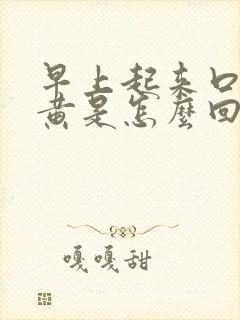 早上起来口
黄是怎麼回
嘎嘎甜